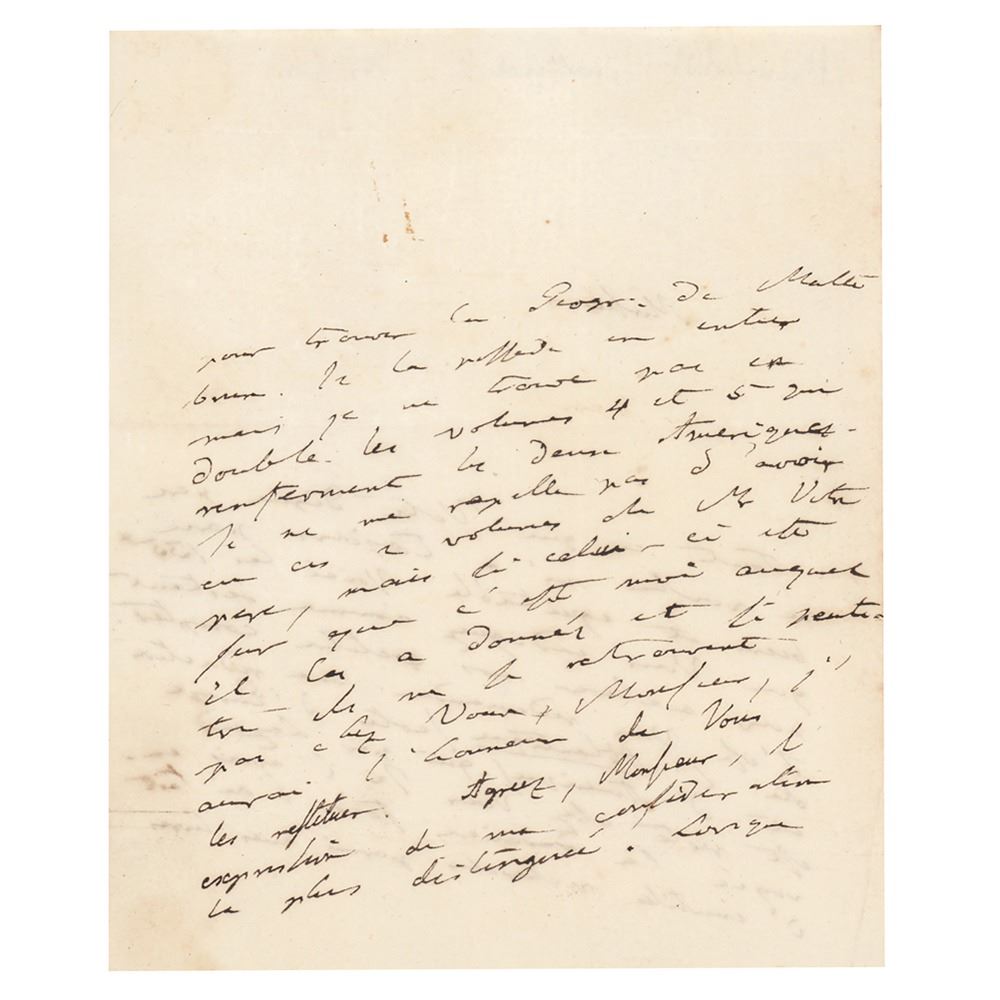 pour trouver la Geogr. de Malte
brun. Je la possede en entier
mais je ne trouve pas en
double les volumes 4 et 5 qui
renferment les deux Ameriques.
Je ne me rapelle pas d'avoir
eu ces 2 volumes de Mr
pere, mais si celui-ci est
sur que c'est moi auquel
il les a donnés et si peute-
tre ils ne se retrouvent
pas chez Vous, Monsieur, j'
aurai l'honneur de Vous
les restituer. Agreez, Monsieur, l'
expression de ma consideration
la plus distinguée.